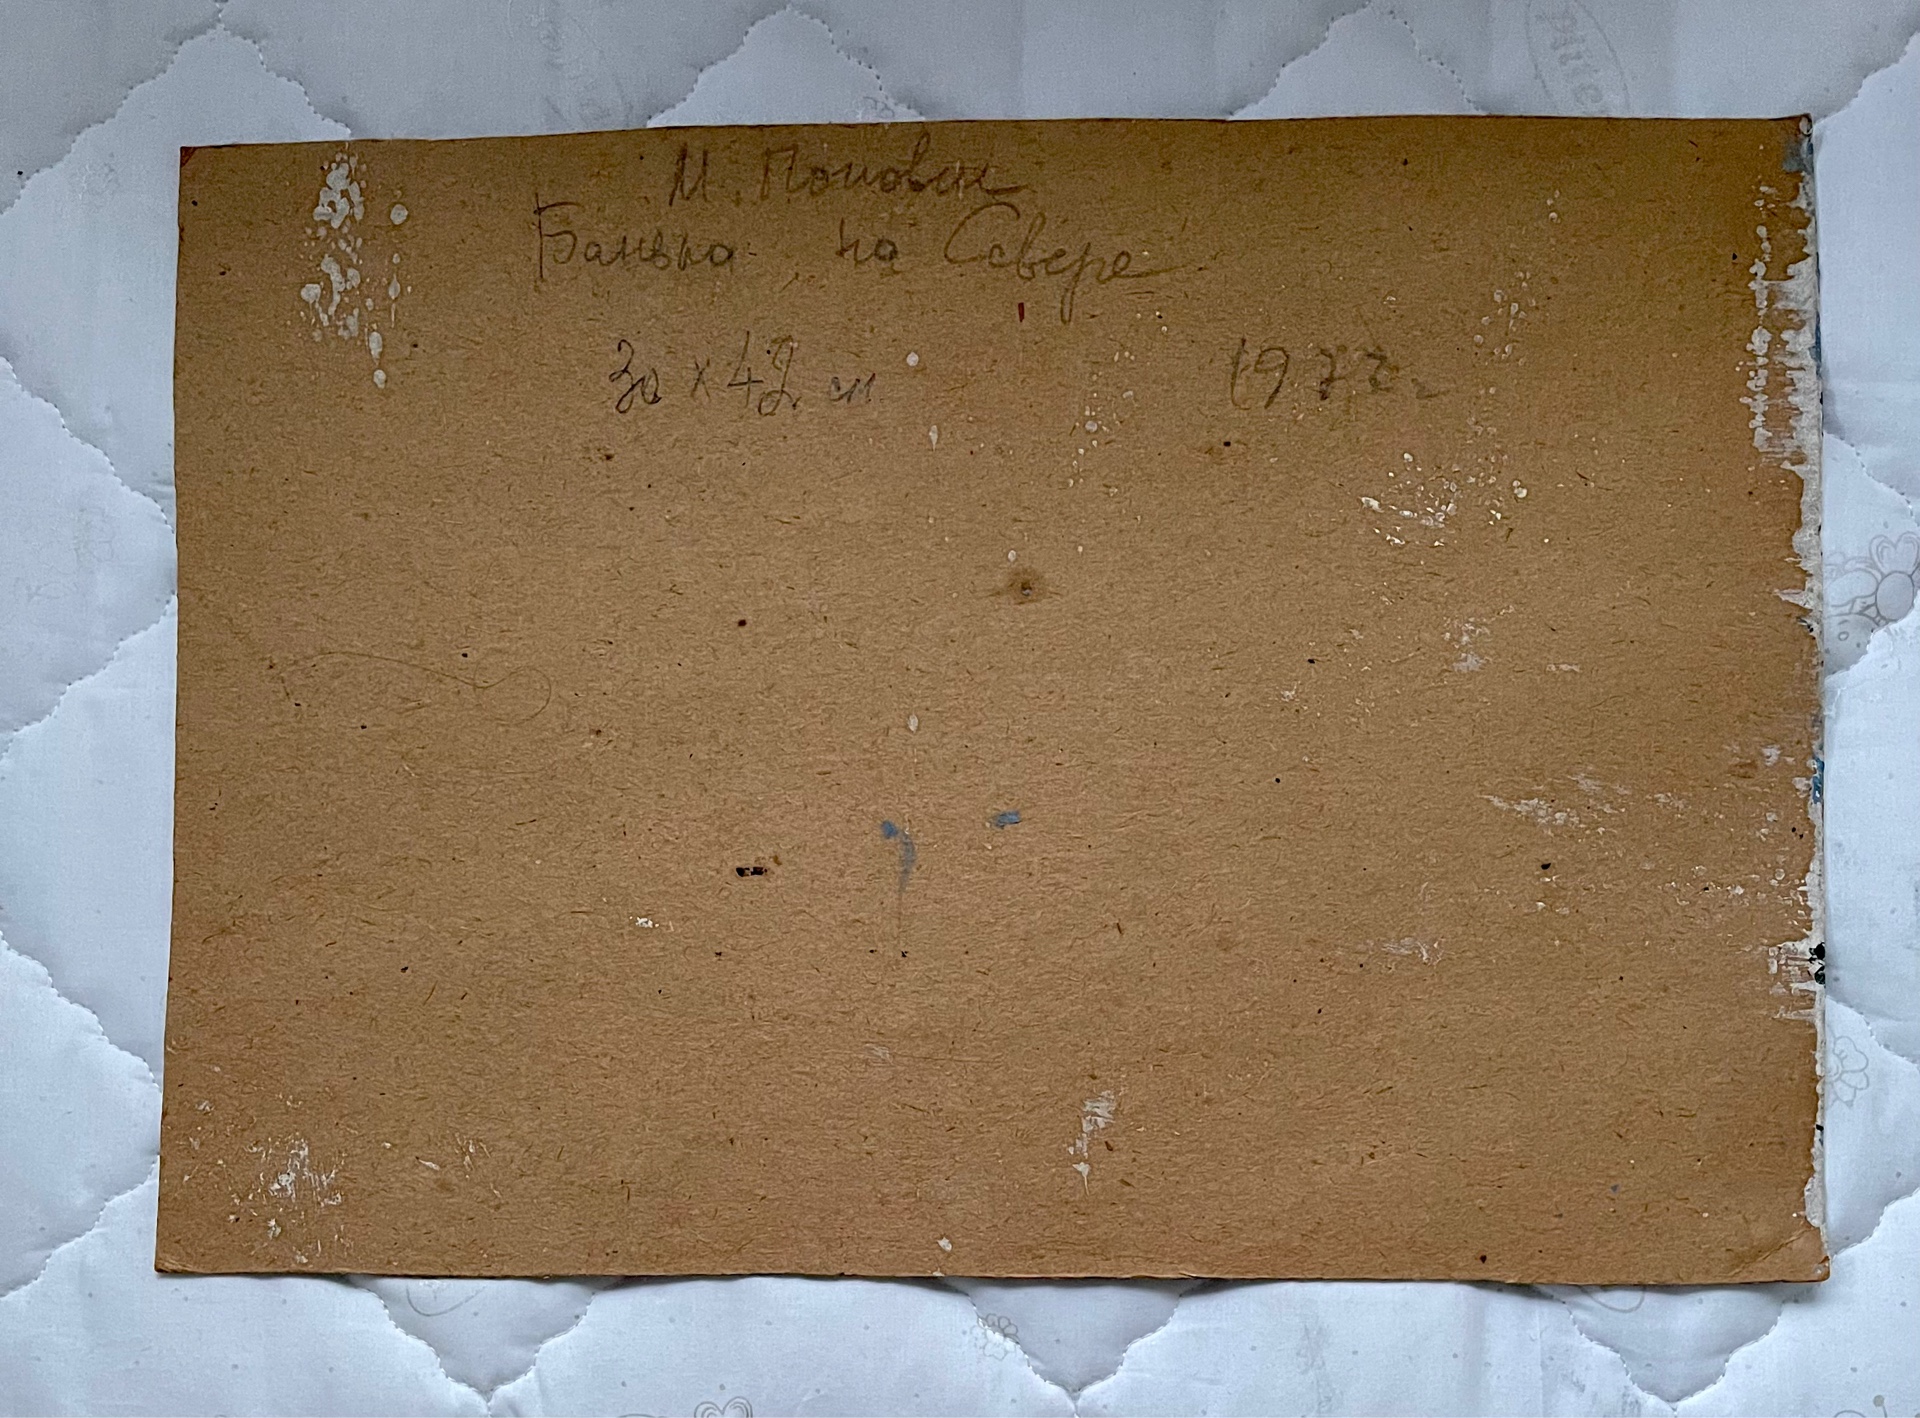 М. Попович
Банька на Севере
30 х 42 см 1977г.